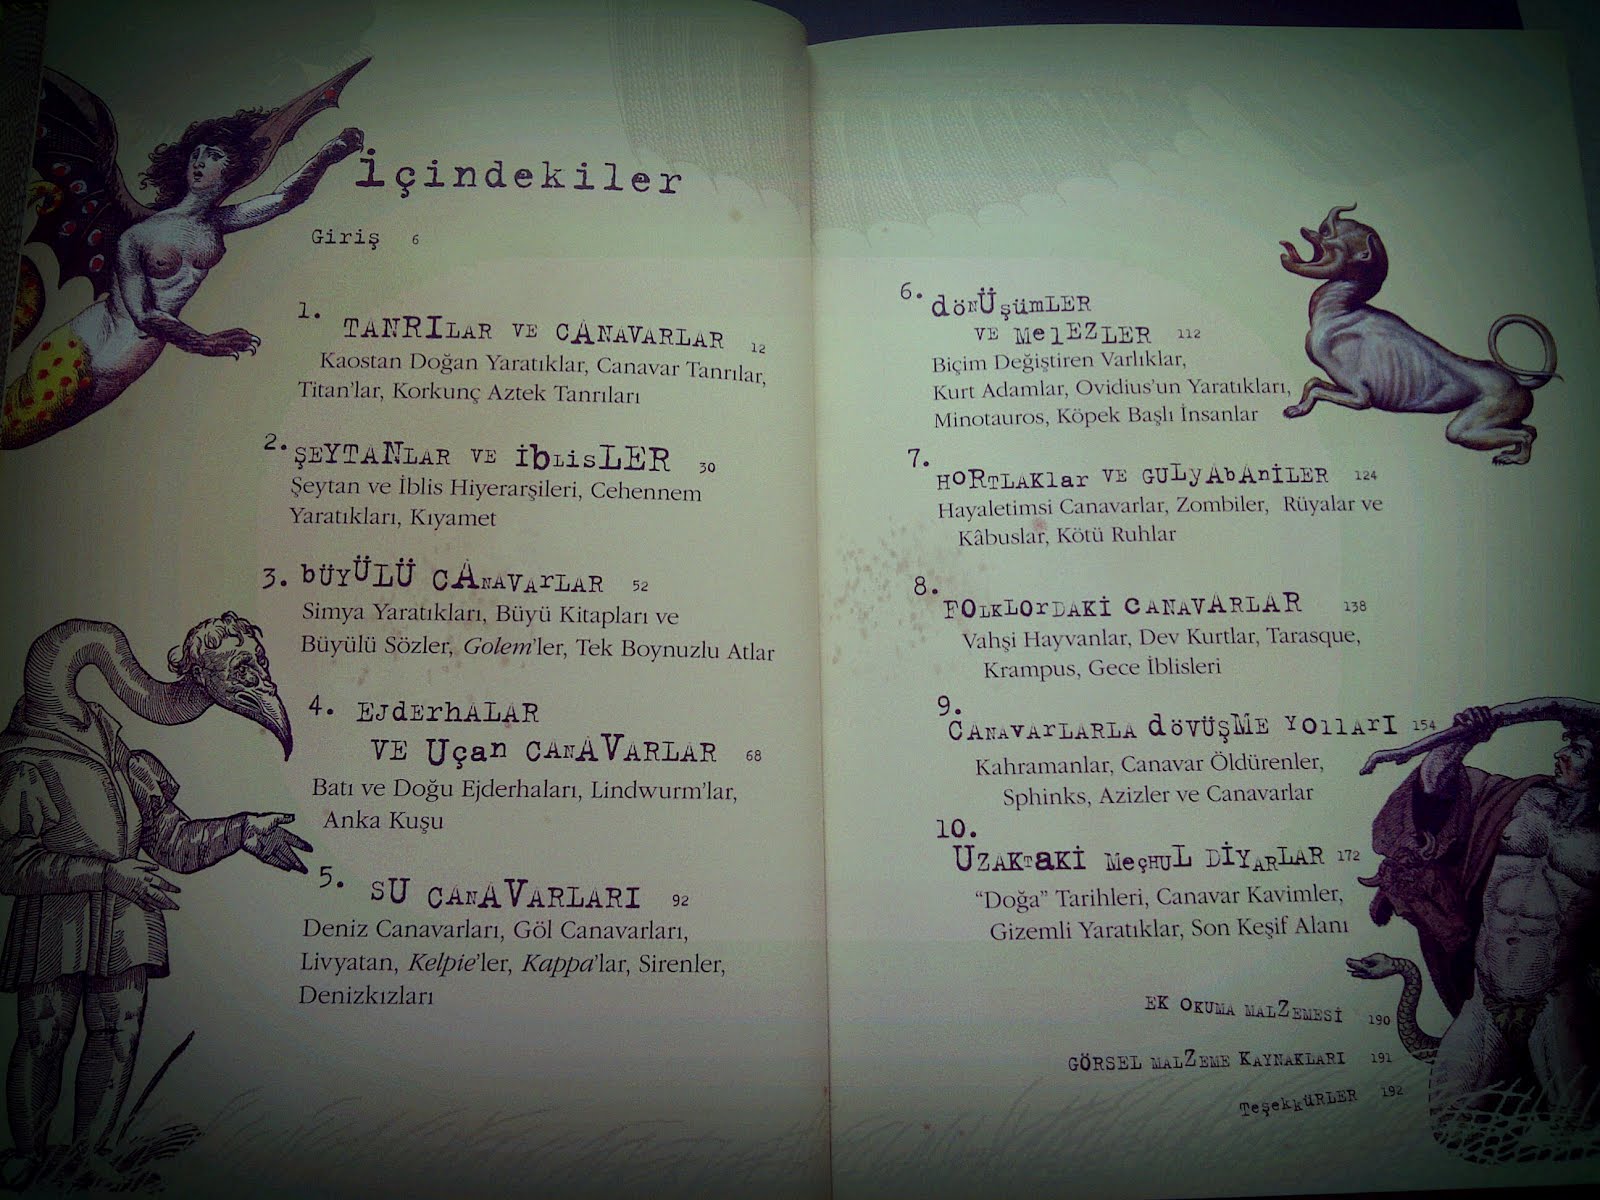 İçindekiler
Giriş 6
1. TANRILAR VE CANAVARLAR 12
Kaostan Doğan Yaratıklar, Canavar Tanrılar,
Titan'lar, Korkunç Aztek Tanrıları
2. ŞEYTANLAR VE İbLisLER 30
Şeytan ve İblis Hiyerarşileri, Cehennem
Yaratıkları, Kıyamet
3. bÜYÜLÜ CANAVArLAR 52
Simya Yaratıkları, Büyü Kitapları ve
Büyülü Sözler, Golem'ler, Tek Boynuzlu Atlar
4. EJderhALAR
VE Uçan CANAVARLAR 68
Batı ve Doğu Ejderhaları, Lindwurm'lar,
Anka Kuşu
5. SU CANAVARLARI 92
Deniz Canavarları, Göl Canavarları,
Livyatan, Kelpie'ler, Kappa'lar, Sirenler,
Denizkızları
6. döNÜşümLER
VE MelEZLER 112
Biçim Değiştiren Varlıklar,
Kurt Adamlar, Ovidius'un Yaratıkları,
Minotauros, Köpek Başlı İnsanlar
7. HORTLAKlar VE GULyAbANiLER 124
Hayaletimsi Canavarlar, Zombiler, Rüyalar ve
Kâbuslar, Kötü Ruhlar
8. FOLKLOrDAKİ CANAVARLAR 138
Vahşi Hayvanlar, Dev Kurtlar, Tarasque,
Krampus, Gece İblisleri
9. CANAVArLARLA dÖVÜŞME YOllARI 154
Kahramanlar, Canavar Öldürenler,
Sphinks, Azizler ve Canavarlar
10. UZAKTaKİ MeÇHUL DİYARLAR 172
"Doğa" Tarihleri, Canavar Kavimler,
Gizemli Yaratıklar, Son Keşif Alanı
EK OKUMA MALZEMESİ 190
GÖRSEL MALZEME KAYNAKLARI 191
TeşekkÜRLER 192